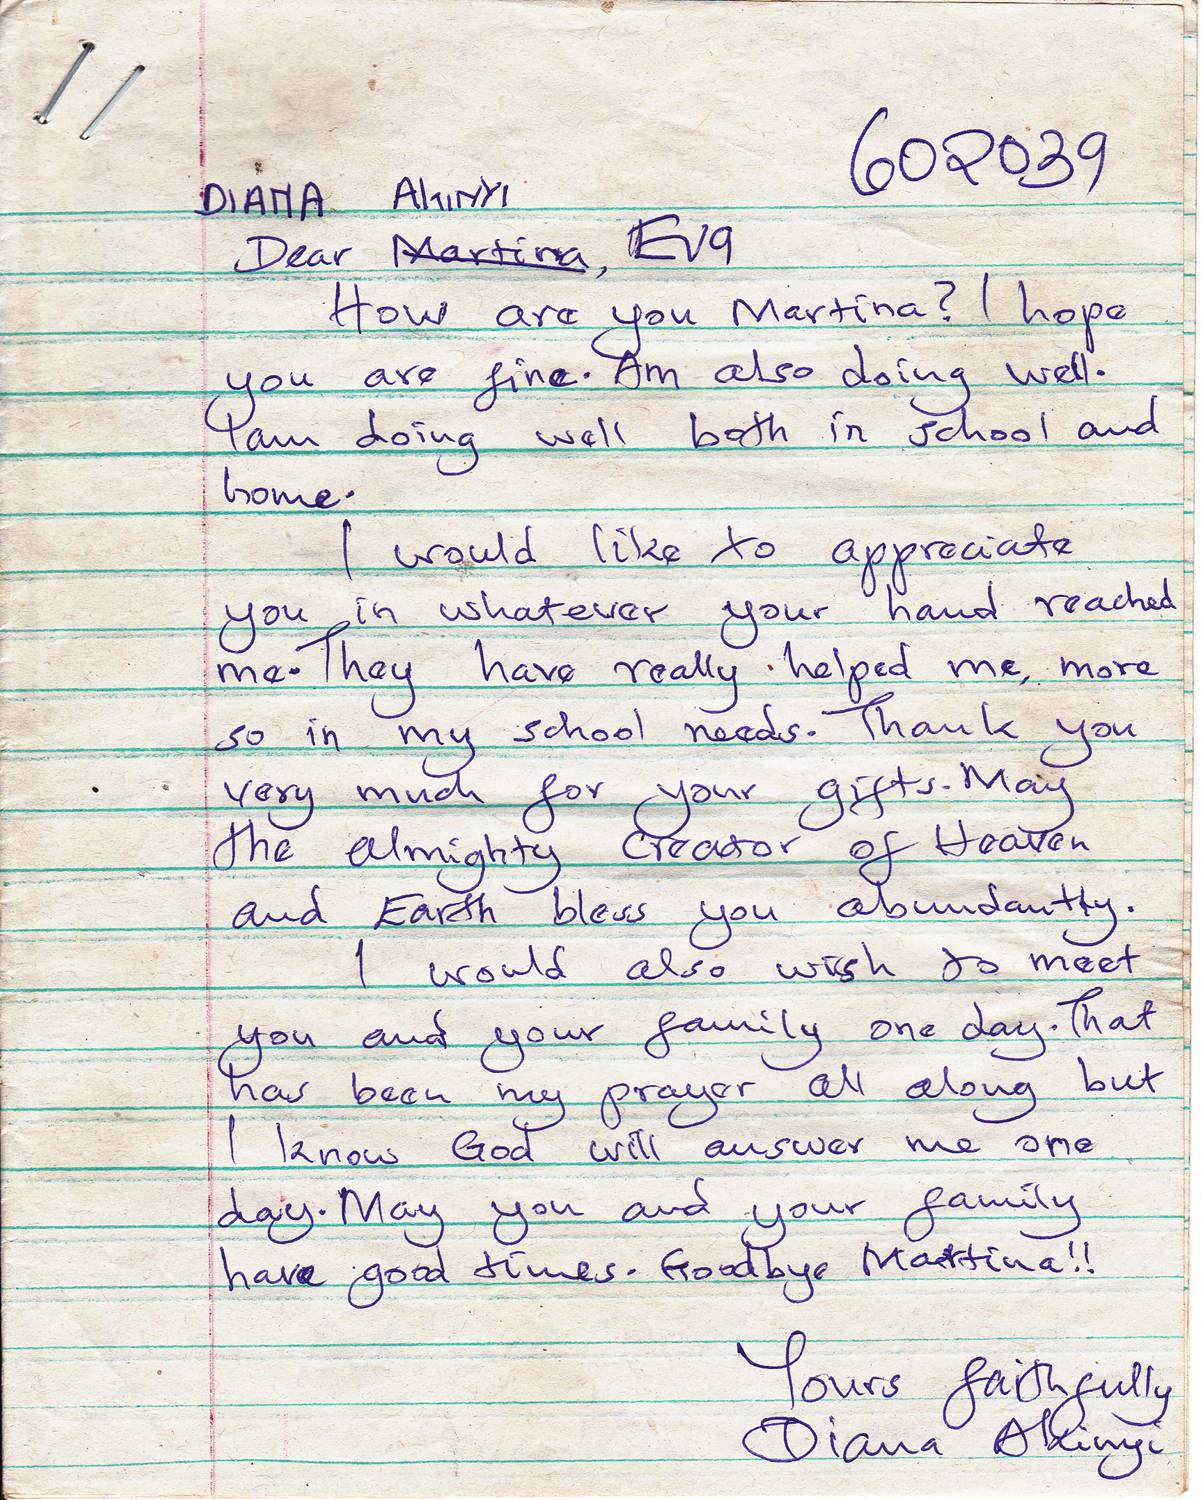 602039
DIANA AKINYI
Dear Martina, Eva
How are you Martina? I hope
you are fine. Am also doing well.
I am doing well both in school and
home.
I would like to appreciate
you in whatever your hand reached
me. They have really helped me, more
so in my school needs. Thank you
very much for your gifts. May
the almighty creator of Heaven
and Earth bless you abundantly.
I would also wish to meet
you and your family one day. That
has been my prayer all along but
I know God will answer me one
day. May you and your family
have good times. Goodbye Martina!!
Yours faithfully
Diana Akinyi